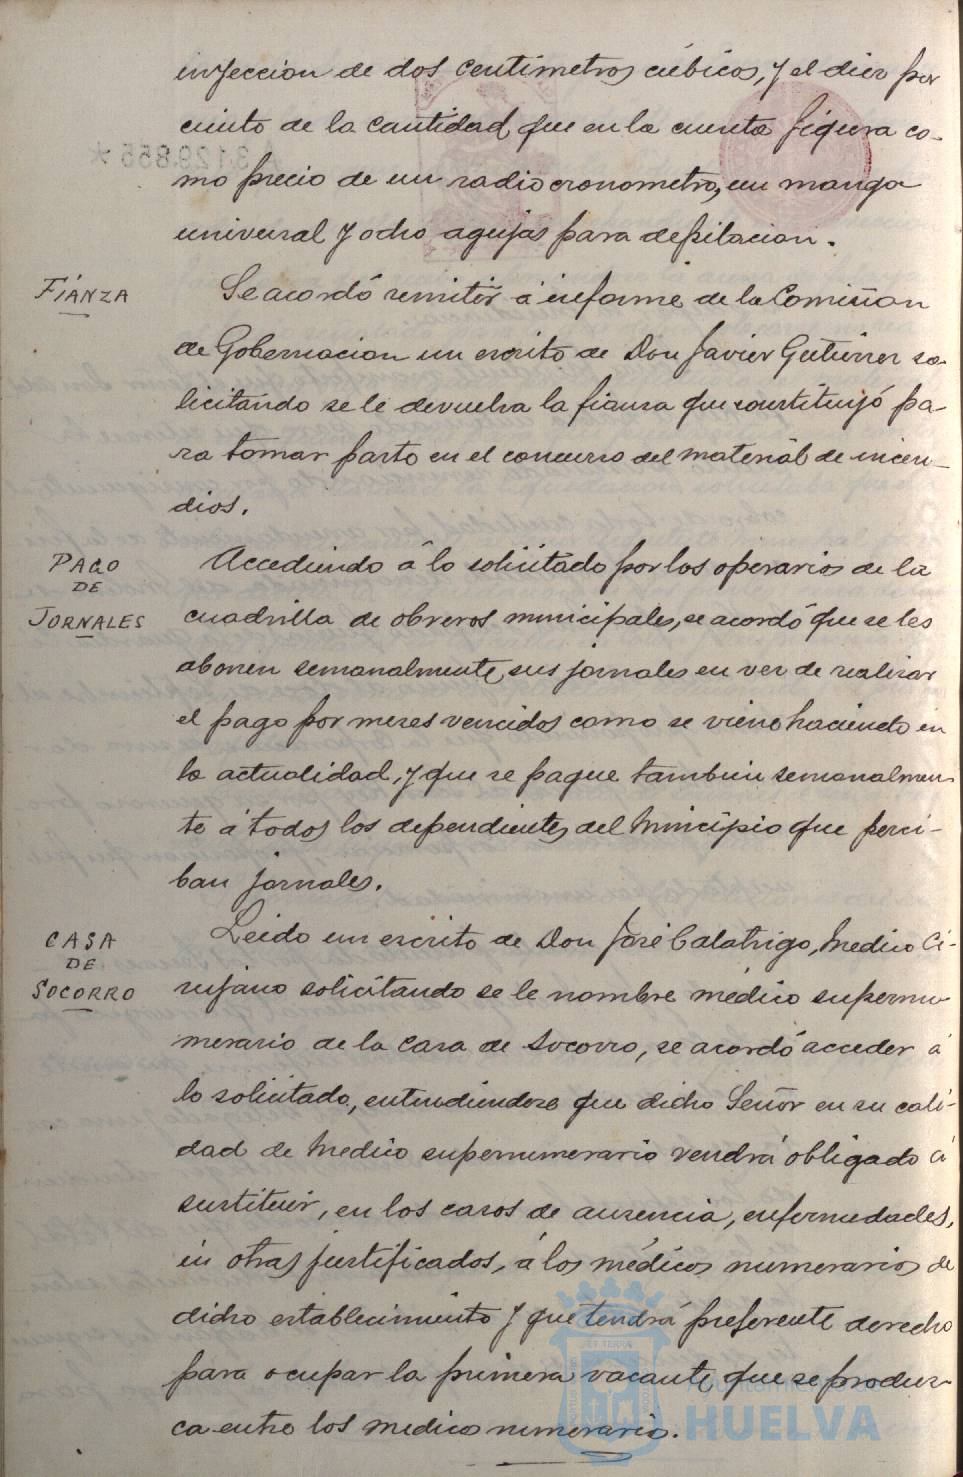 inyeccion de dos centimetros cúbicos, y el diez por
ciento de la cantidad que en la cuenta figura co-
mo precio de un radiocronometro, un manga
universal y ocho agujas para depilacion.
FIANZA
Se acordó remitir á informe de la Comision
de Gobernacion un escrito de Don Javier Gutierrez so-
licitando se le devuelva la fianza que constituyó pa-
ra tomar parte en el concurso del material de incen-
dios.
PAGO
DE
JORNALES
Accediendo á lo solicitado por los operarios de la
cuadrilla de obreros municipales, se acordó que se les
abonen semanalmente sus jornales en vez de realizar
el pago por meses vencidos como se viene haciendo en
la actualidad, y que se pague tambien semanalmen-
te á todos los dependientes del Municipio que perci-
ban jornales.
CASA
DE
SOCORRO
Leido un escrito de Don José Calatrigo, Medico Ci-
rujano solicitando se le nombre médico supernu-
merario de la Casa de Socorro, se acordó acceder á
lo solicitado, entendiendose que dicho Señor en su cali-
dad de Medico supernumerario vendrá obligado á
sustituir, en los casos de ausencia, enfermedades,
ú otras justificados, á los médicos numerarios de
dicho establecimiento y que tendrá preferente derecho
para ocupar la primera vacante que se produz-
ca entre los medicos numerarios.
A3129.855*
Ayuntamiento de
HUELVA